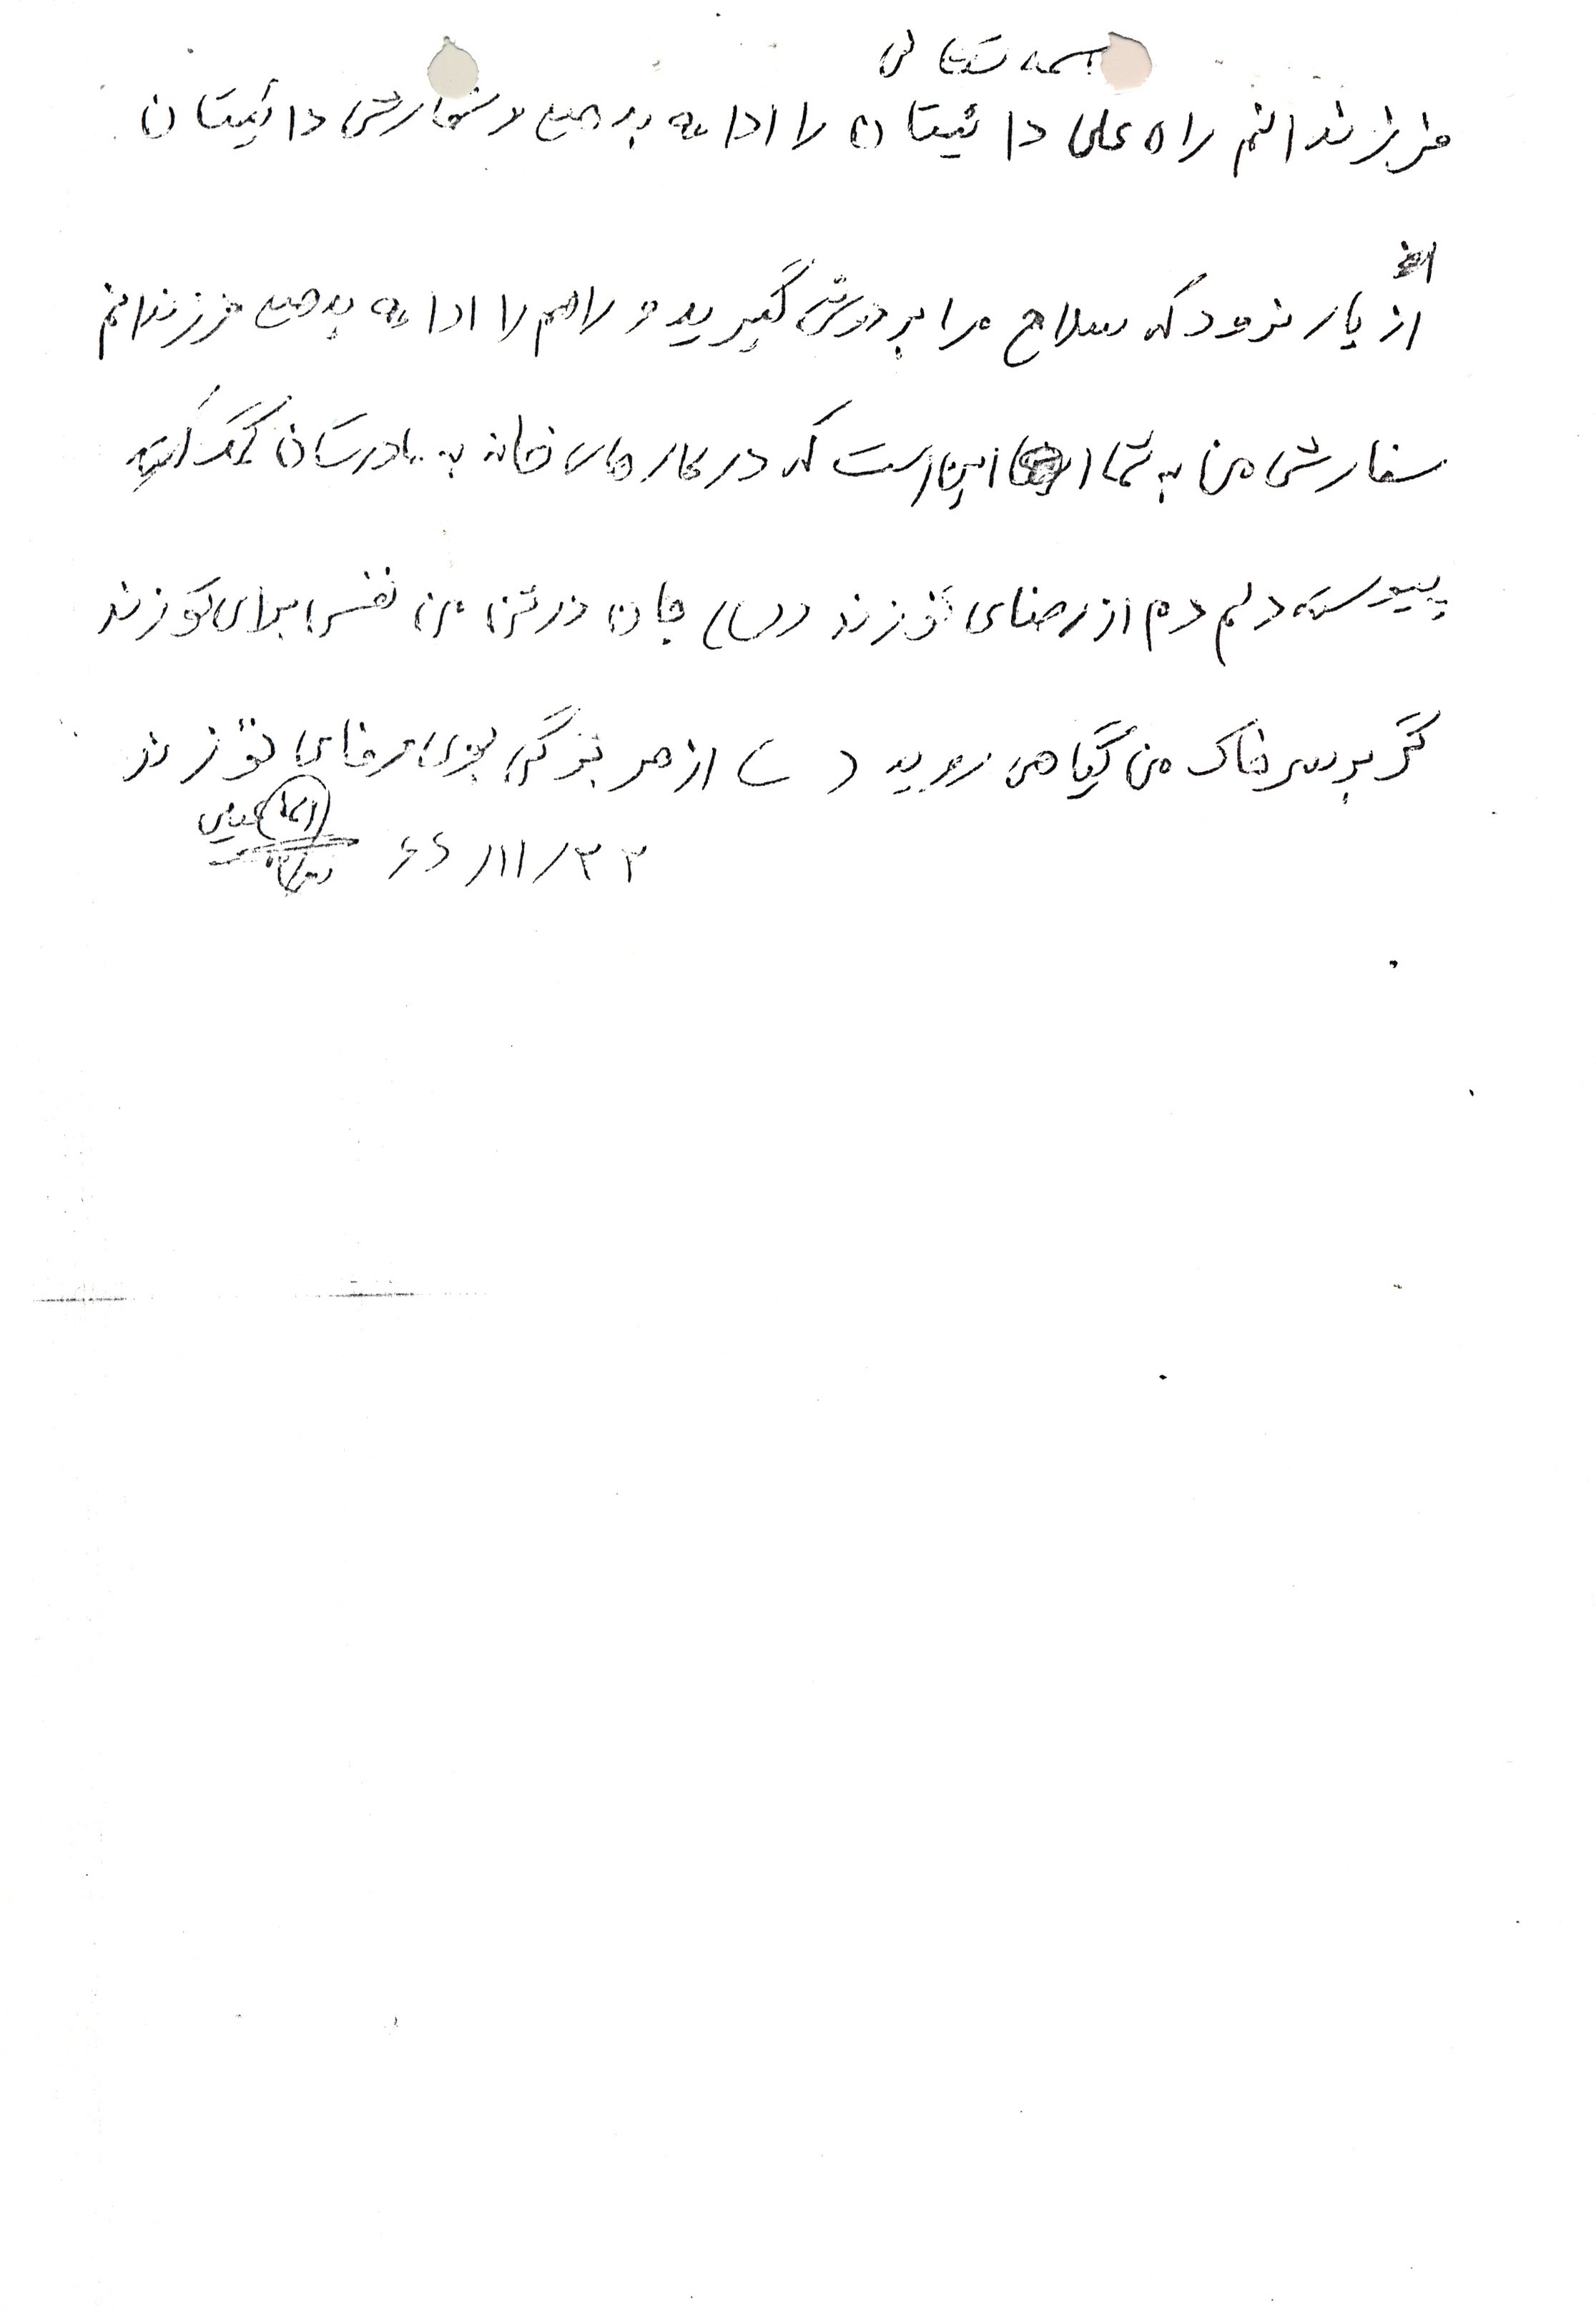 بسمه تعالی
فرزندانم راه علی دائیتان را ادامه بدهید و سفارش دائیتان
از یاد نرود که سلاح مرا بر دوش گیرید و راهم را ادامه بدهید فرزندانم
سفارش من به شما این است که در کارهای خانه به مادرتان کمک کنید
پیوسته دلم دم از رضای تو زند جان در تن من نفس برای تو زند
گر بر سر خاک من گیاهی روید از هر برگی بوی وفای تو زند
۶۶/۱۱/۲۳